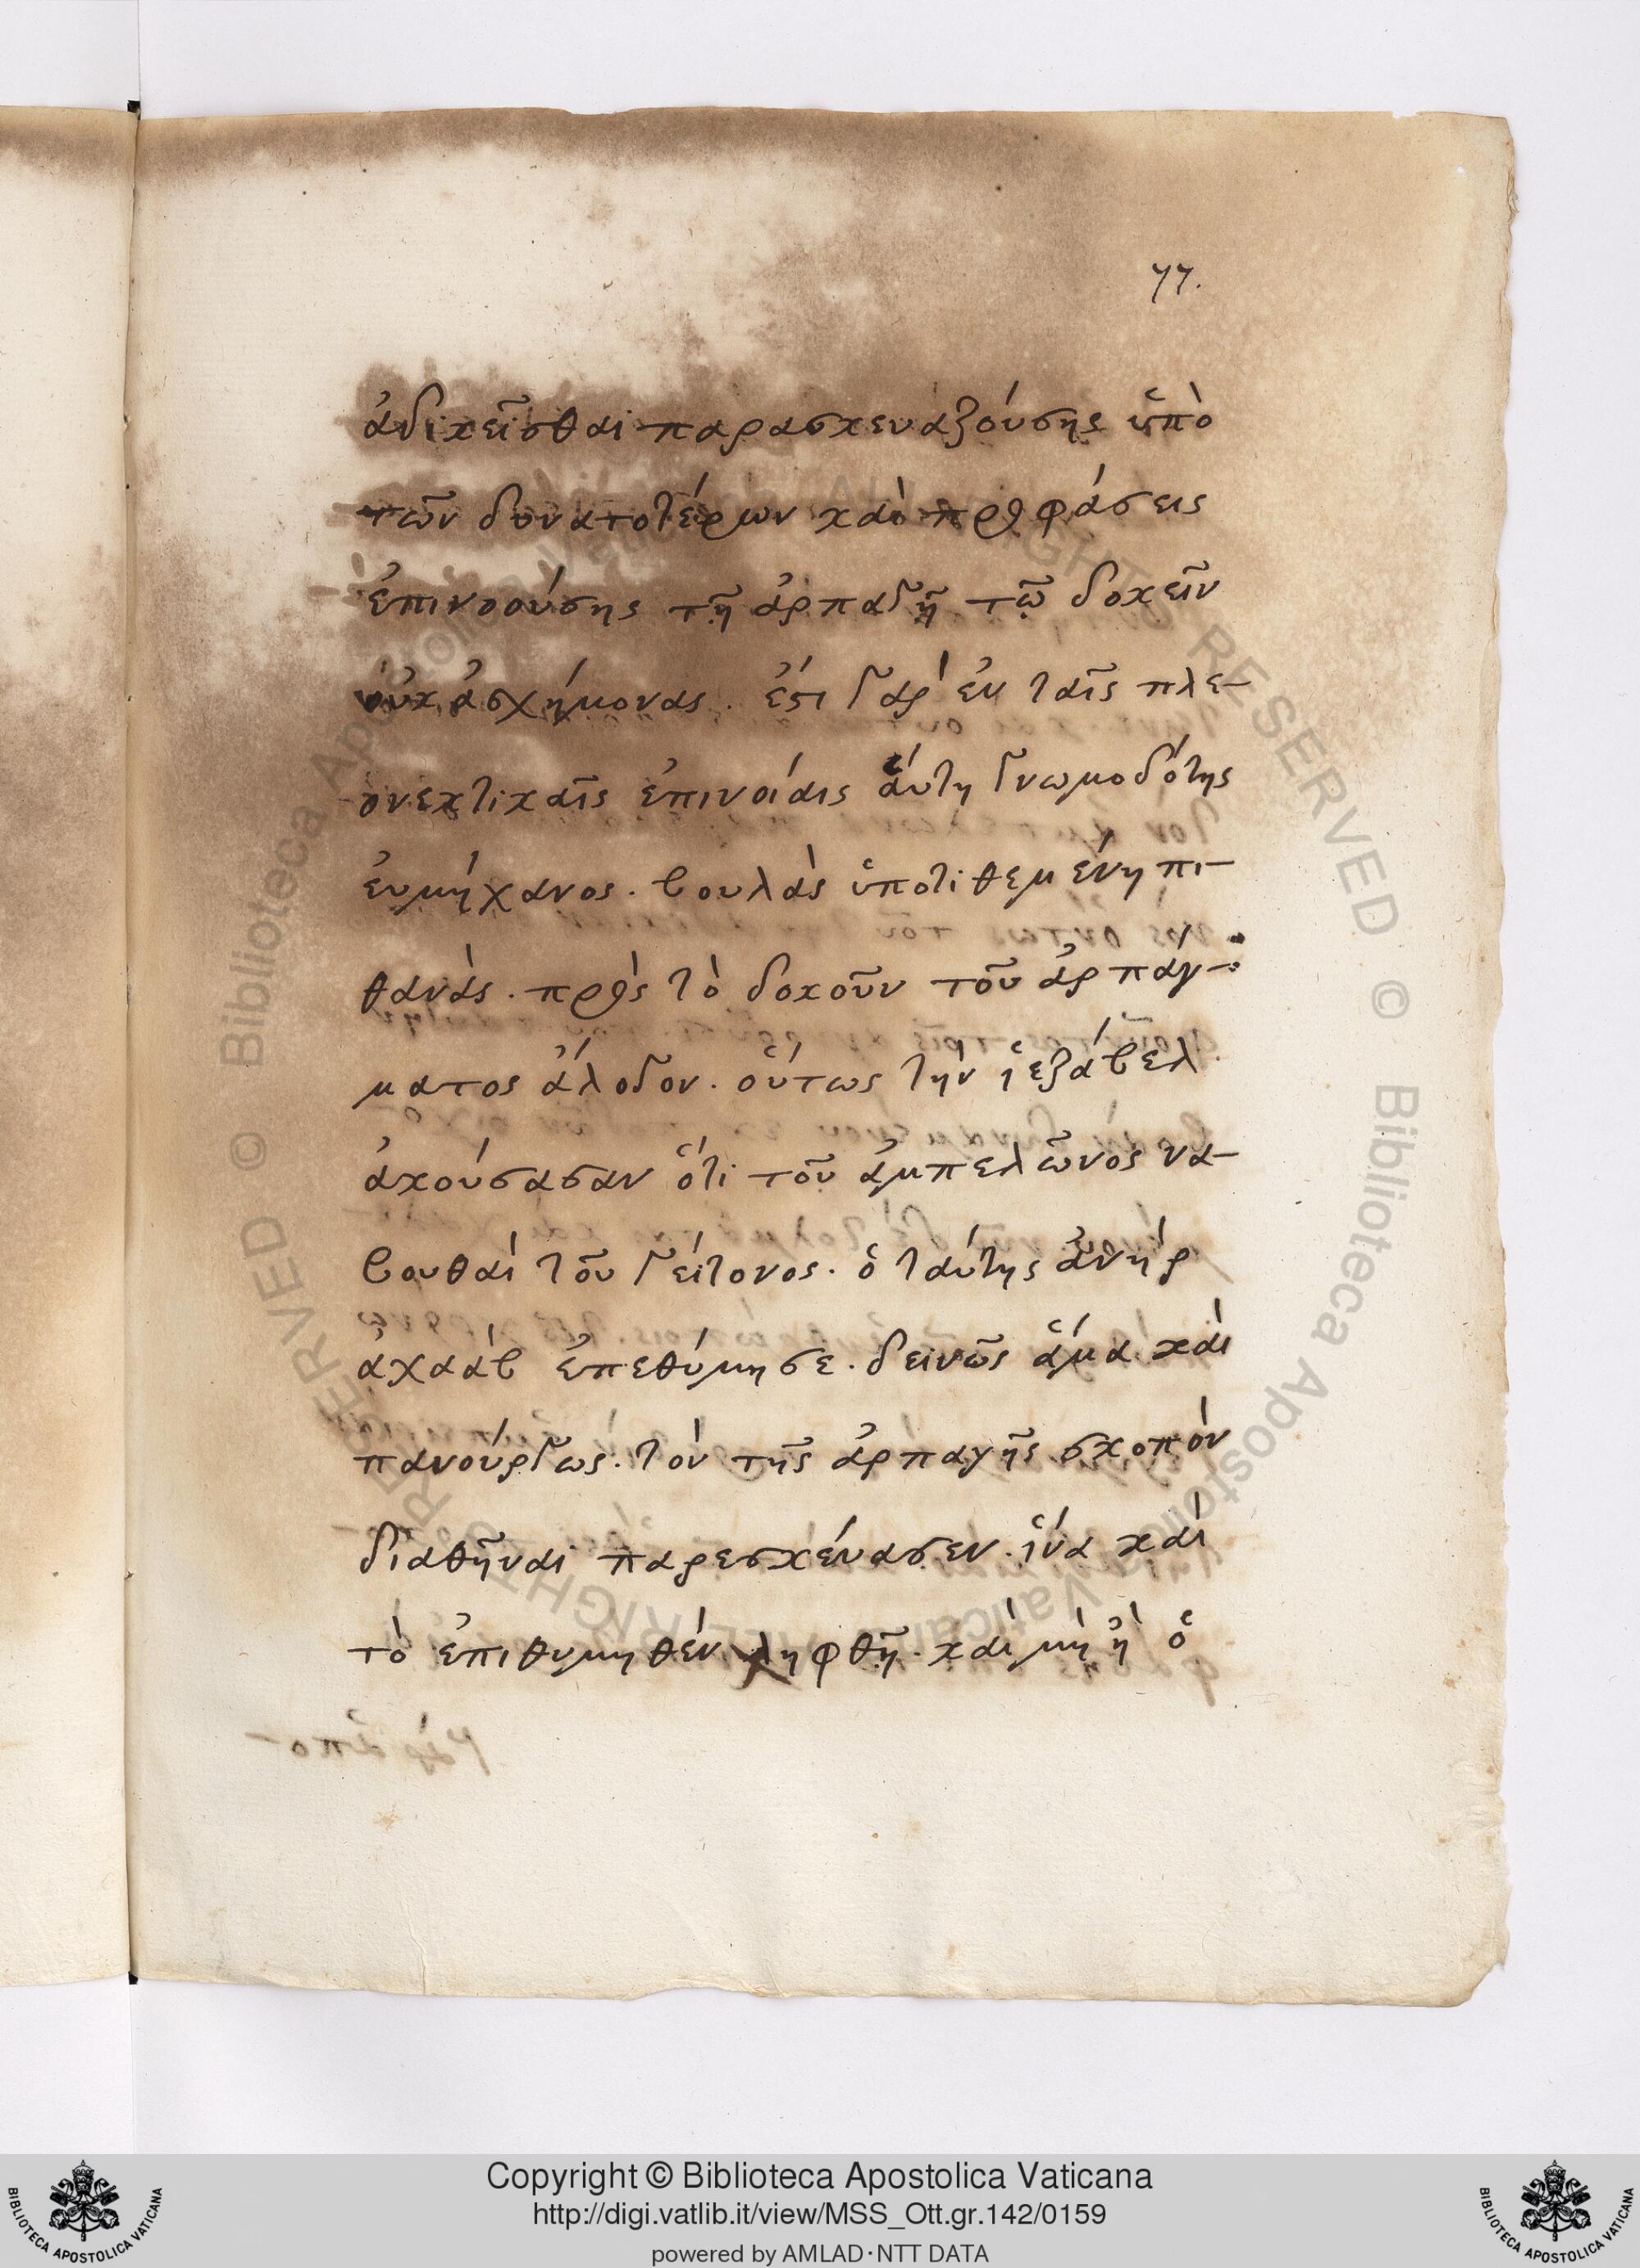 77.
ἀδικεῖσθαι παρασκευαζούσης ὑπὸ
τῶν δυνατοτέρων καὶ προφάσεις
ἐπινοούσης τῇ ἁρπαγῇ τῷ δοκεῖν
οὐκ ἀσχήμονας. ἔστι γὰρ ἐν ταῖς πλε-
ονεκτικαῖς ἐπινοίαις αὕτη γνωμοδότης
ἐυμήχανος. βουλὰς ὑποτιθεμένη πι-
θανὰς. πρὸς τὸ δοκοῦν τοῦ ἁρπάγ-
ματος ἄλογον. οὕτως τὴν ἰεζάβελ
ἀκούσασαν ὅτι τοῦ ἀμπελῶνος να-
βουθαὶ τοῦ γείτονος. ὁ ταύτης ἀνὴρ
ἀχαὰβ ἐπεθύμησε. δεινῶς ἅμα καὶ
πανούργως. τὸν τῆς ἁρπαγῆς σκοπὸν
διαθῆναι παρεσκεύασεν. ἵνα καὶ
τὸ ἐπιθυμηθὲν ληφθῇ. καὶ μὴ ἦ ὁ
Copyright © Biblioteca Apostolica Vaticana
http://digi.vatlib.it/view/MSS_Ott.gr.142/0159
powered by AMLAD·NTT DATA
BIBLIOTECA APOSTOLICA VATICANA
BIBLIOTECA APOSTOLICA VATICANA